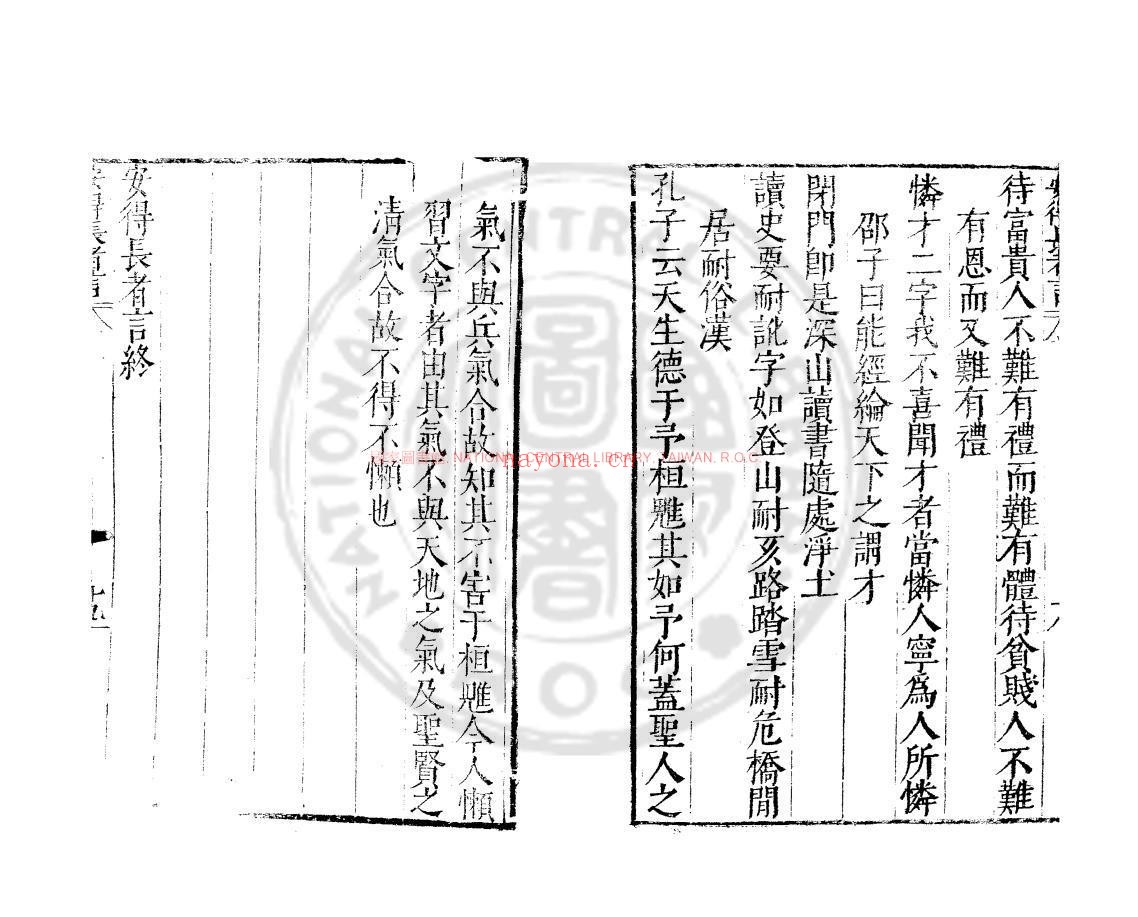 待富貴人不難有禮而難有體待貧賤人不難
有恩而又難有禮
憐才二字我不喜聞才者當憐人寧爲人所憐
邵子曰能經綸天下之謂才
閉門卽是深山讀書隨處淨土
讀史要耐訛字如登山耐仄路踏雪耐危橋閒
居耐俗漢
孔子云天生德于予桓魋其如予何蓋聖人之
氣不與兵氣合故知其不害于桓魋今人懶
習文字者由其氣不與天地之氣及聖賢之
清氣合故不得不懶也
安得長者言終
NATIONAL CENTRAL LIBRARY, TAIWAN. R.O.C
nayona.cn